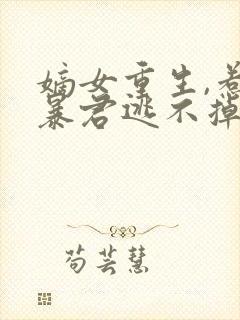 嫡女重生,惹
暴君逃不掉
苟芸慧